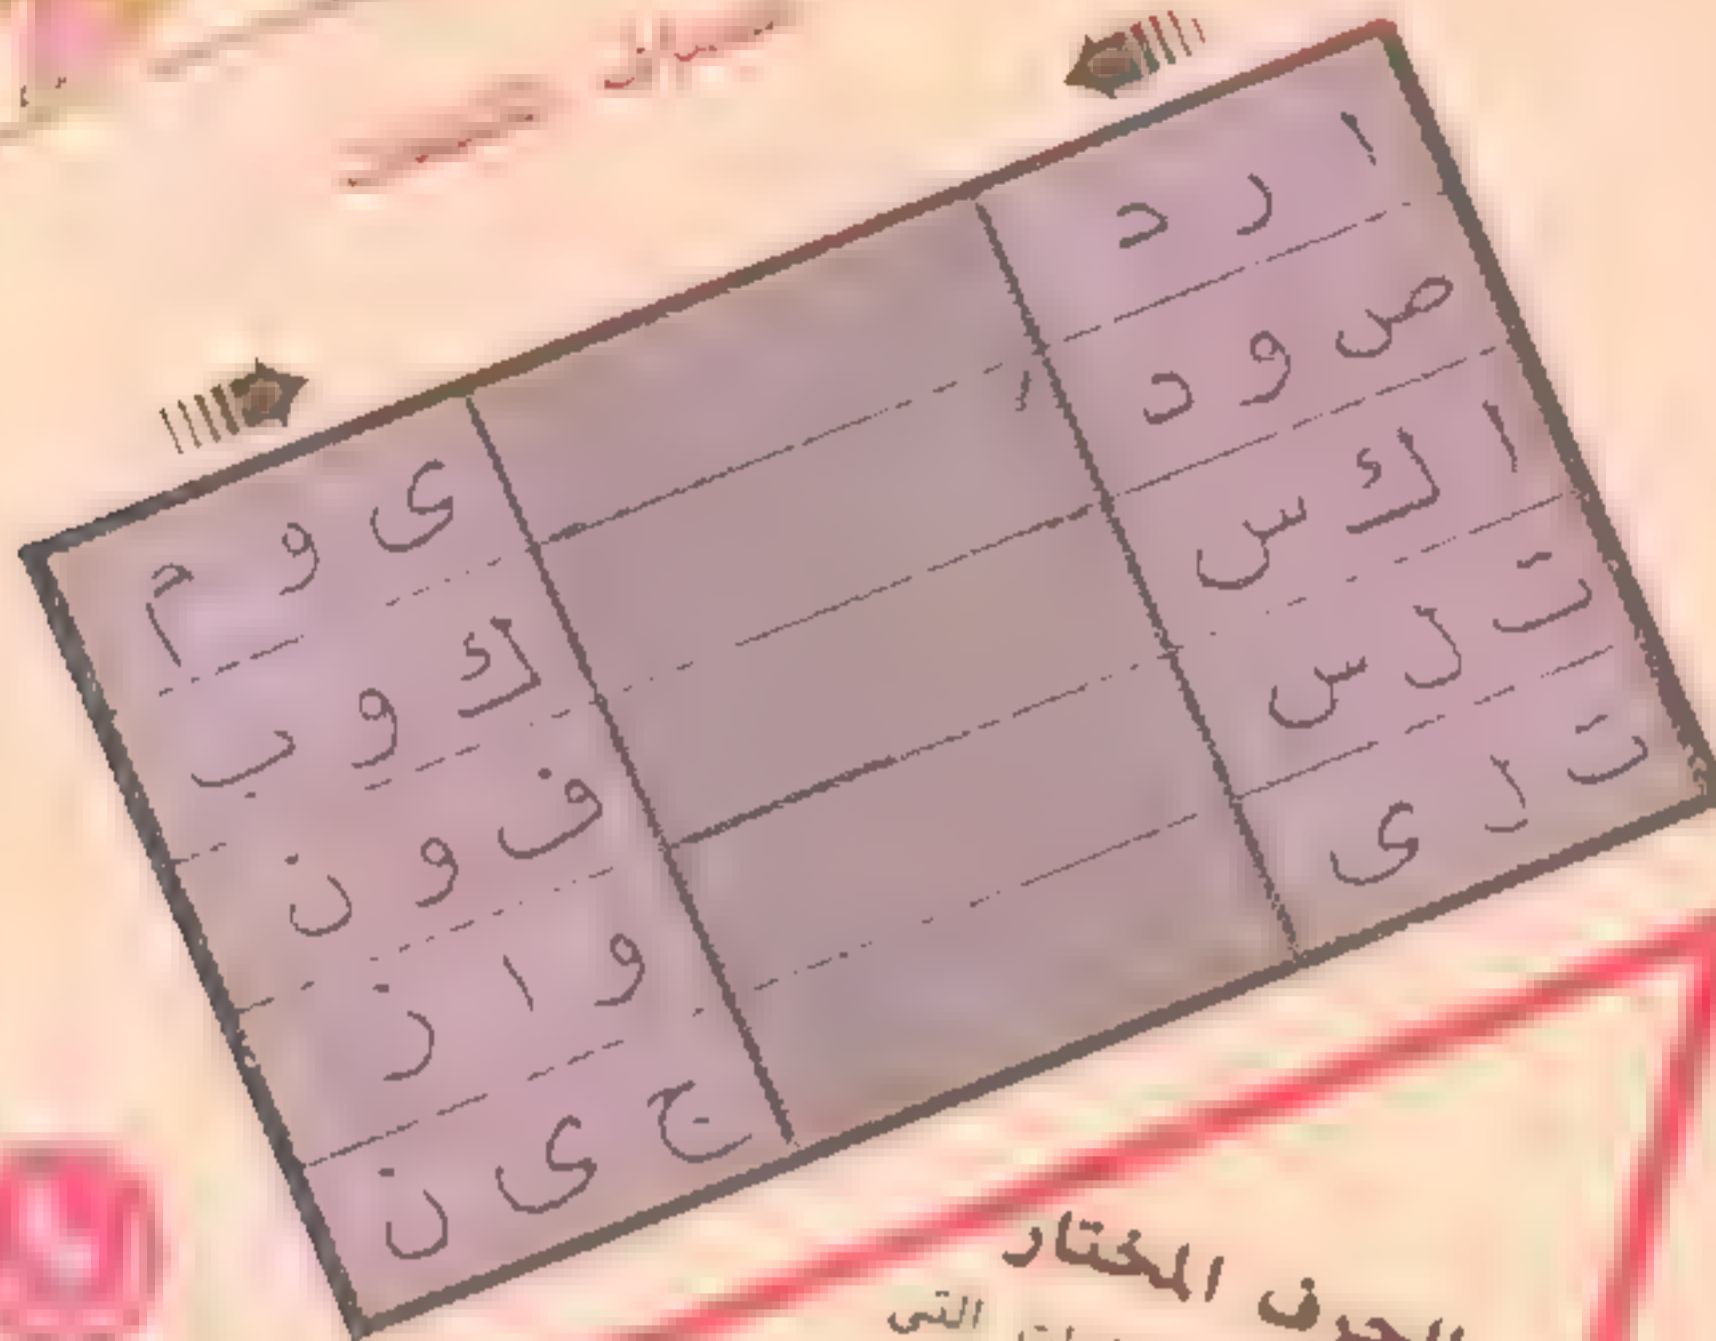 ا ر د
ص و د
ا ك س
ت ل س
ت ل ى
ى و م
ك و ب
ف و ن
و ا ز
ج ى ن
الحرف المختار
التى